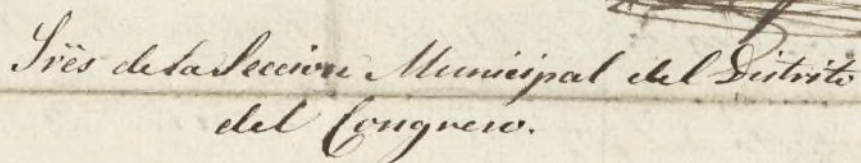 Sres de la Seccion Municipal del Distrito
del Congreso.